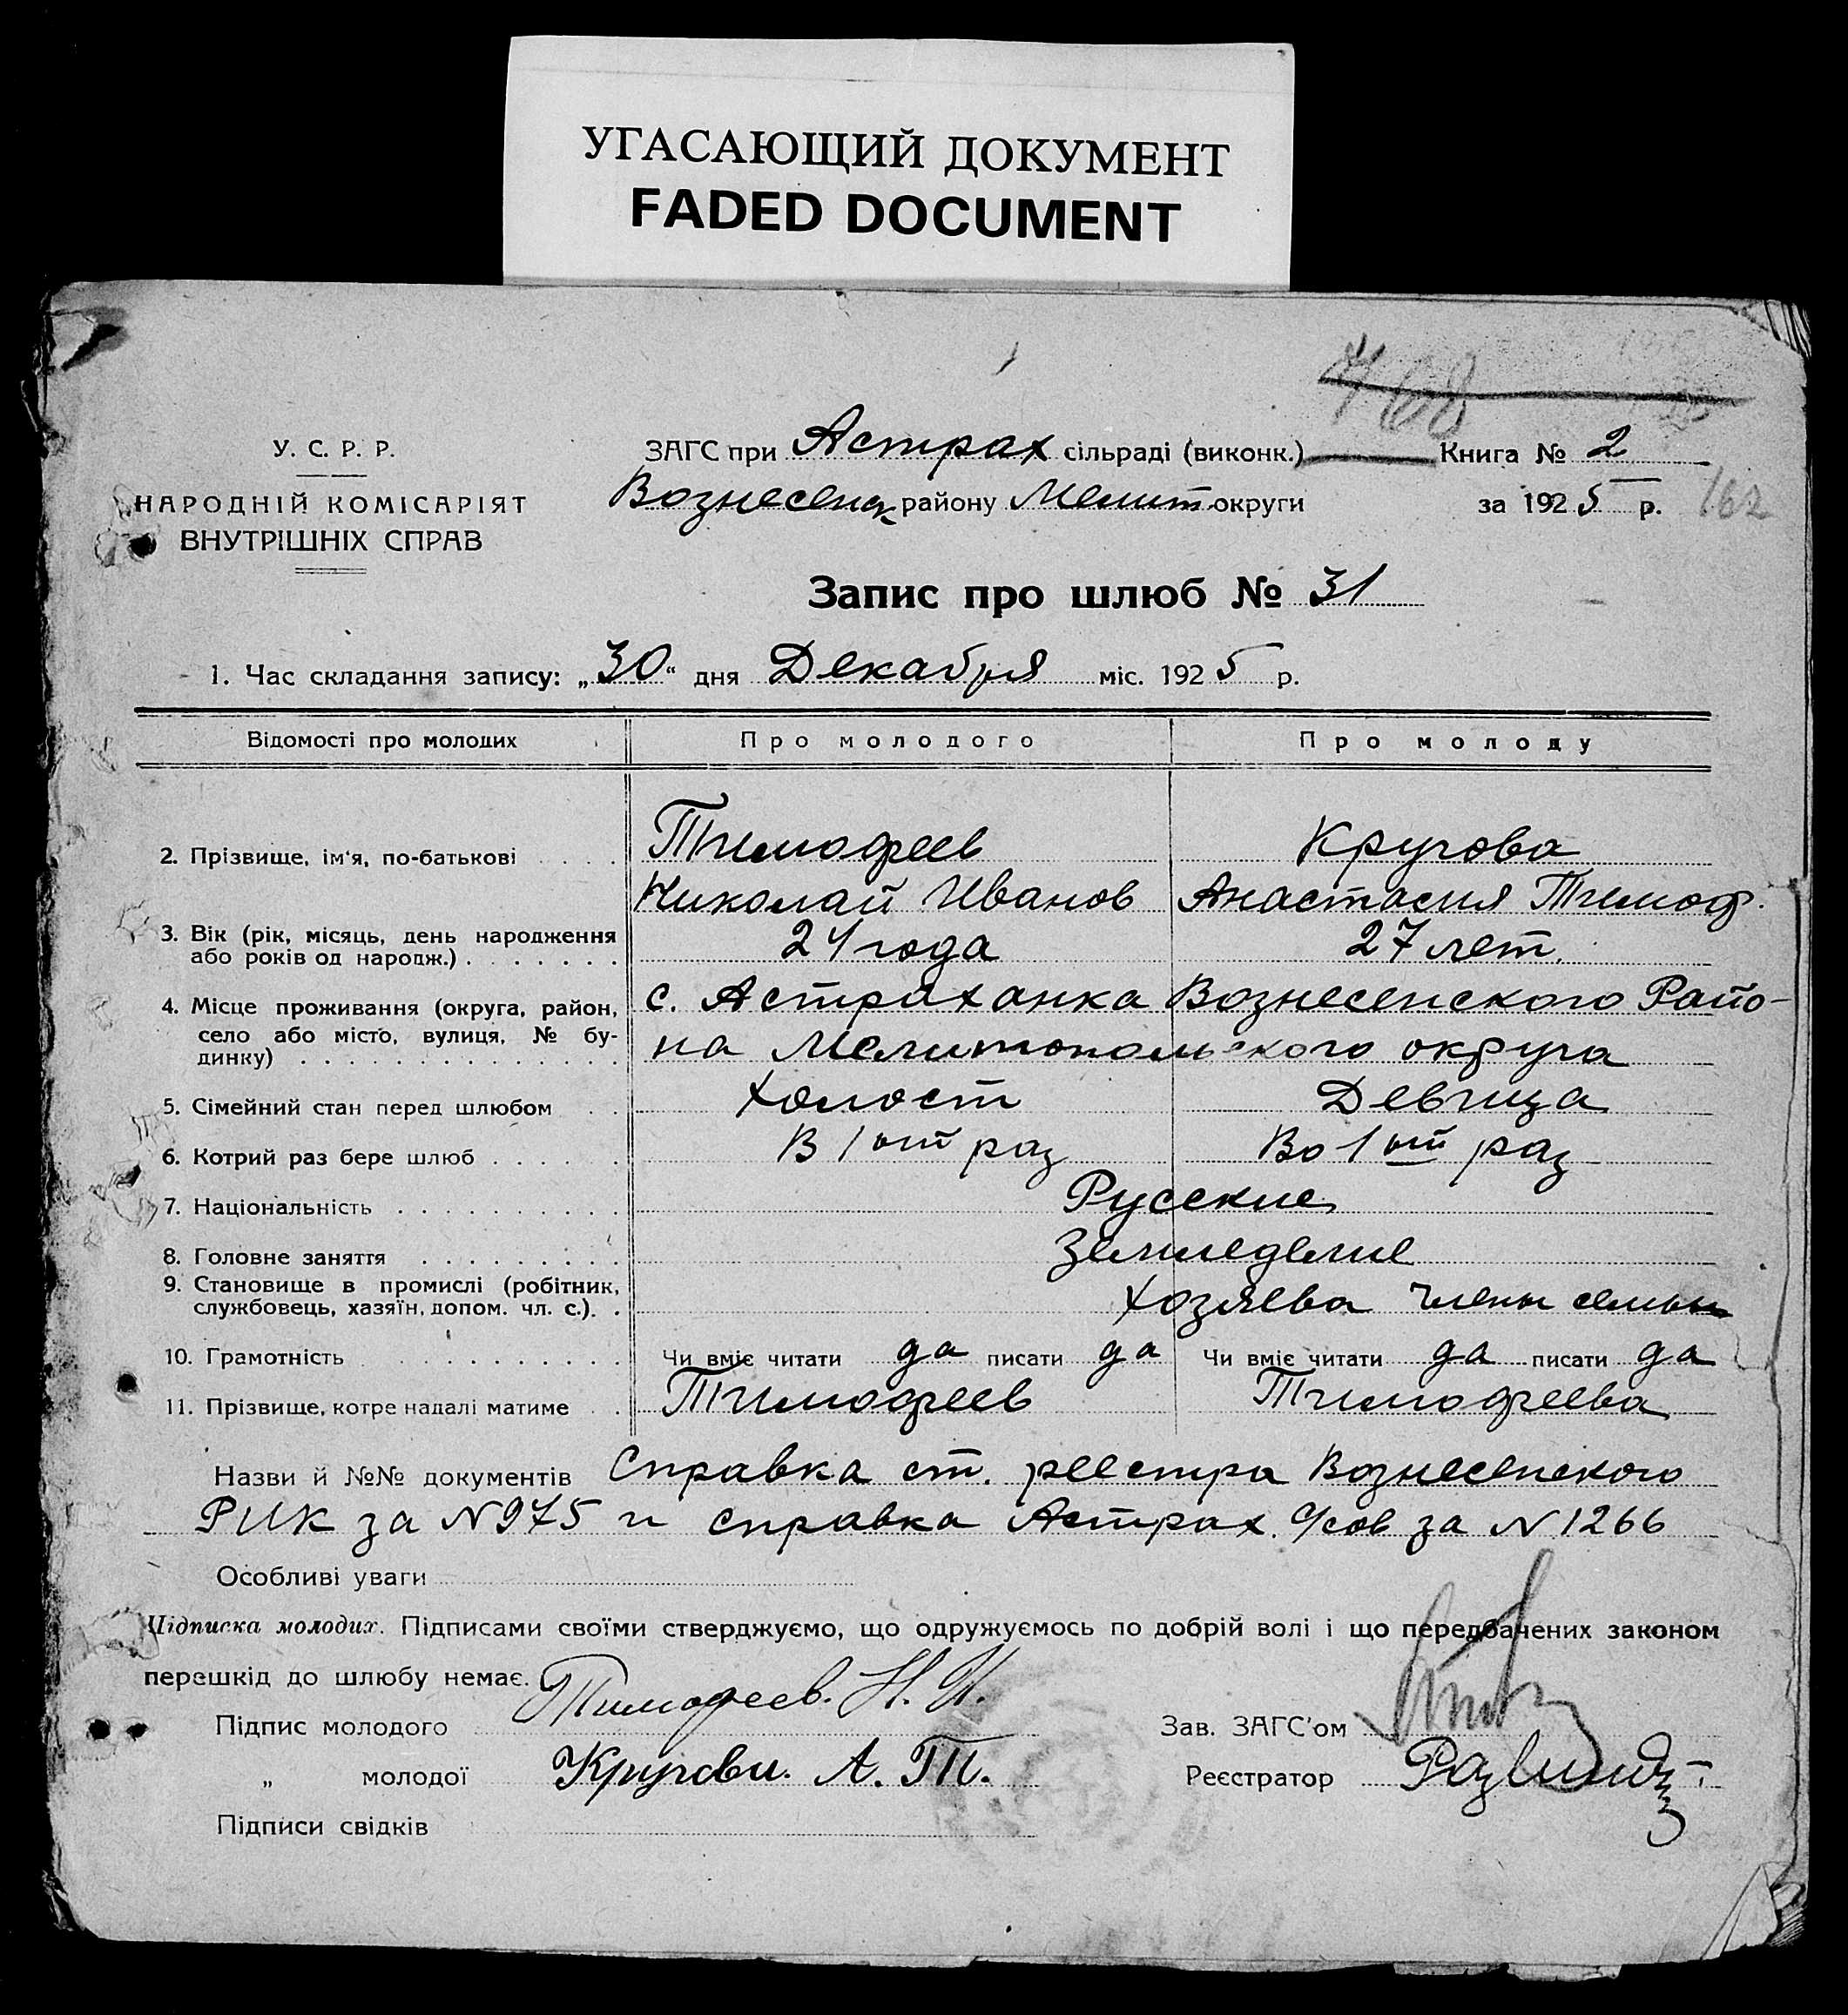 УГАСАЮЩИЙ ДОКУМЕНТ
FADED DOCUMENT
У. С. Р. Р.
НАРОДНІЙ КОМІСАРІЯТ
ВНУТРІШНІХ СПРАВ
ЗАГС при Астрах сільраді (виконк.) Книга № 2
Вознесенск району Мелит округи за 1925 р. 162
Запис про шлюб № 31
1. Час складання запису: „30“ дня Декабря міс. 1925 р.
Відомості про молодих Про молодого Про молоду
2. Прізвище, ім'я, по-батькові Тимофеев Кругова
Николай Иванов Анастасия Тимоф.
3. Вік (рік, місяць, день народження 24 года 27 лет.
або років од народж.)
4. Місце проживання (округа, район, с. Астраханка Вознесенского Райо-
село або місто, вулиця, № бу- на Мелитопольского округа
динку)
5. Сімейний стан перед шлюбом Холост Девица
6. Котрий раз бере шлюб В 1ый раз Во 1ый раз
7. Національність Русские
8. Головне заняття Земледелие
9. Становище в промислі (робітник, Хозяева члены семьи
службовець, хазяїн, допом. чл. с.)
10. Грамотність Чи вміє читати да писати да Чи вміє читати да писати да
11. Прізвище, котре надалі матиме Тимофеев Тимофеева
Назви й №№ документів Справка ст. реестра Вознесенского
РИК за N 975 и справка Астрах. с/сов за N 1266
Особливі уваги
Підписка молодих. Підписами своїми стверджуємо, що одружуємось по добрій волі і що передбачених законом
перешкід до шлюбу немає.
Підпис молодого Тимофеев. Н. И. Зав. ЗАГС'ом
„ молодої Кругова. А. Т. Реєстратор
Підписи свідків